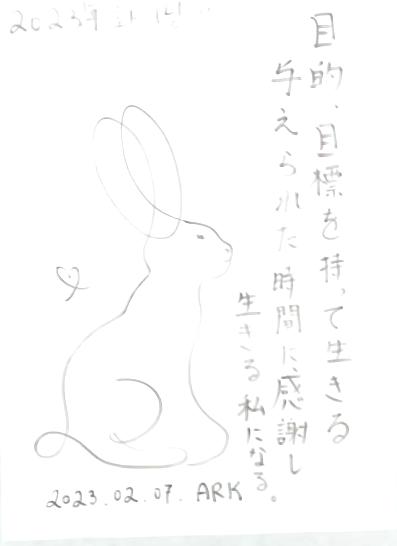 2023年
目的、目標を持って生きる
与えられた時間に、感謝し
生きる私になる。
2023.02.07. ARK